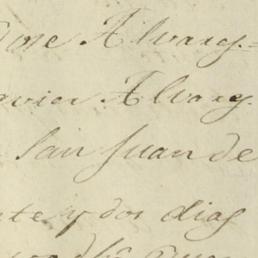 Jose Alvarez=
avier Alvarez
San Juan de
nte, y dos dias